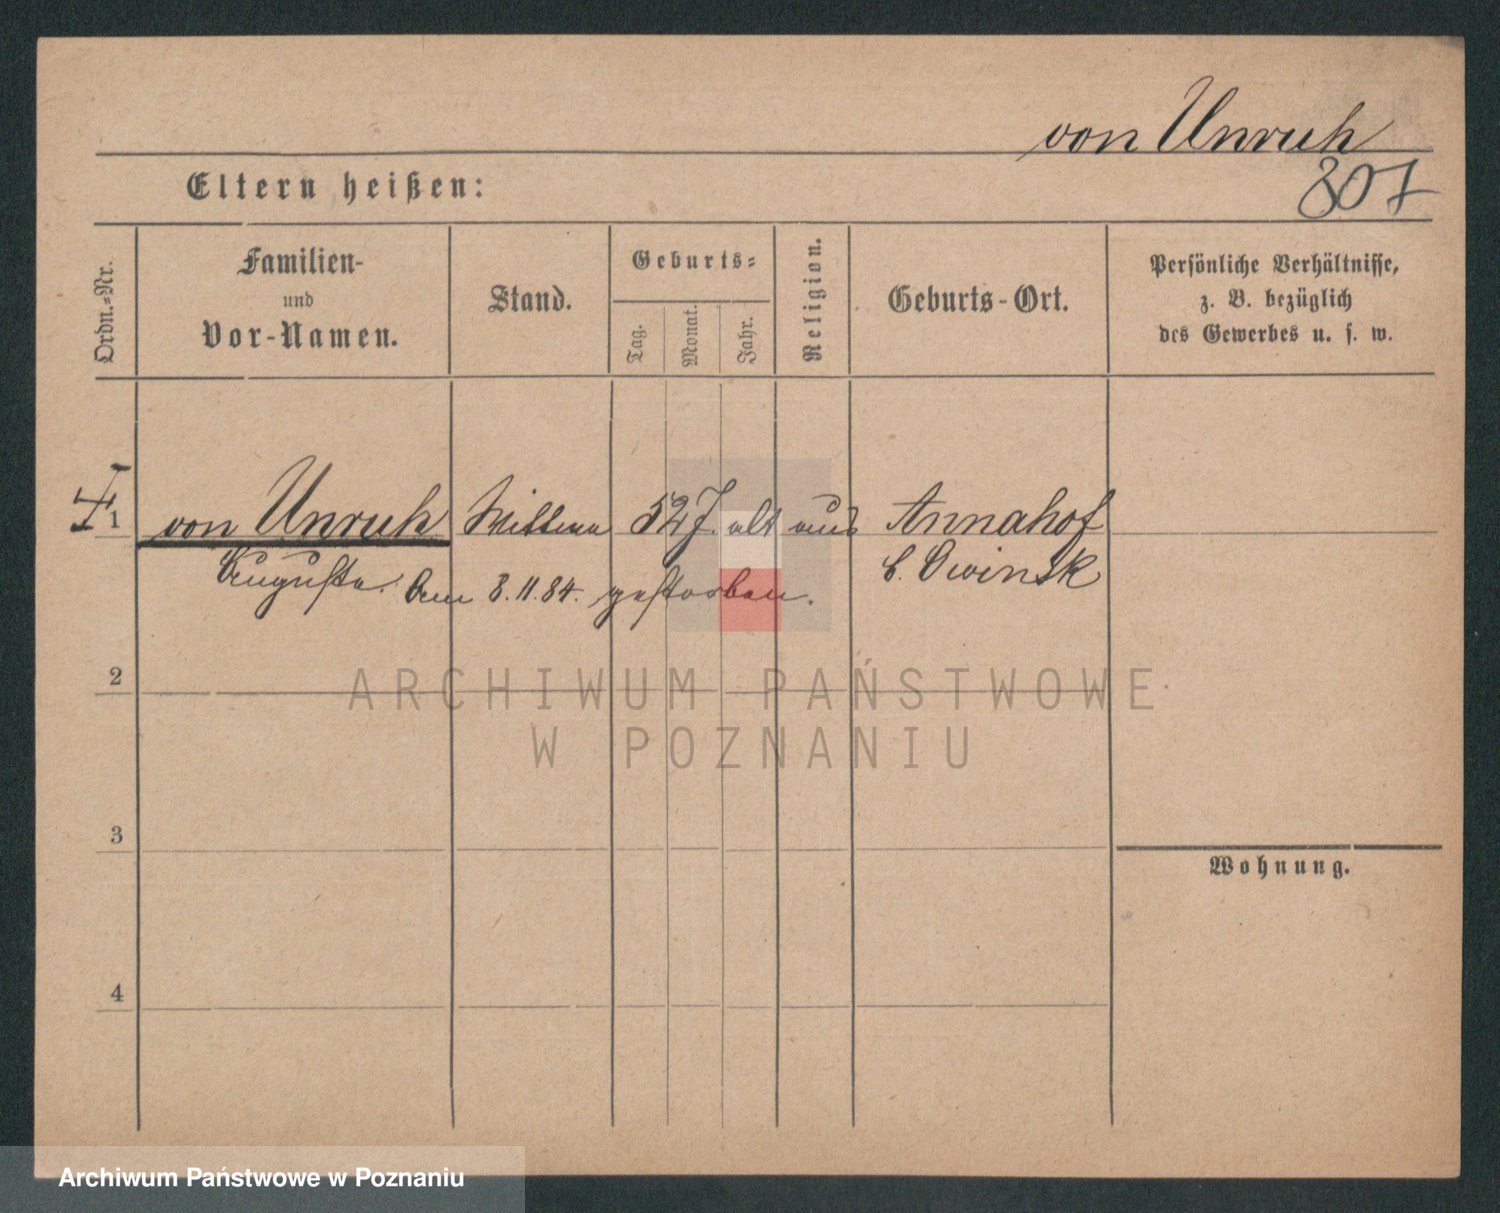 von Unruh
Eltern heißen:
807
Ordn.=Nr.
Familien-
und
Vor-Namen.
Stand.
Geburts=
Tag.
Monat.
Jahr.
Religion.
Geburts-Ort.
Persönliche Verhältnisse,
z. B. bezüglich
des Gewerbes u. s. w.
1 von Unruh Wittwe 52 J. alt aus Annahof
Auguste. Am 8.11.84. gestorben. b. Owinsk
2
ARCHIWUM PAŃSTWOWE
W POZNANIU
3
Wohnung.
4
Archiwum Państwowe w Poznaniu